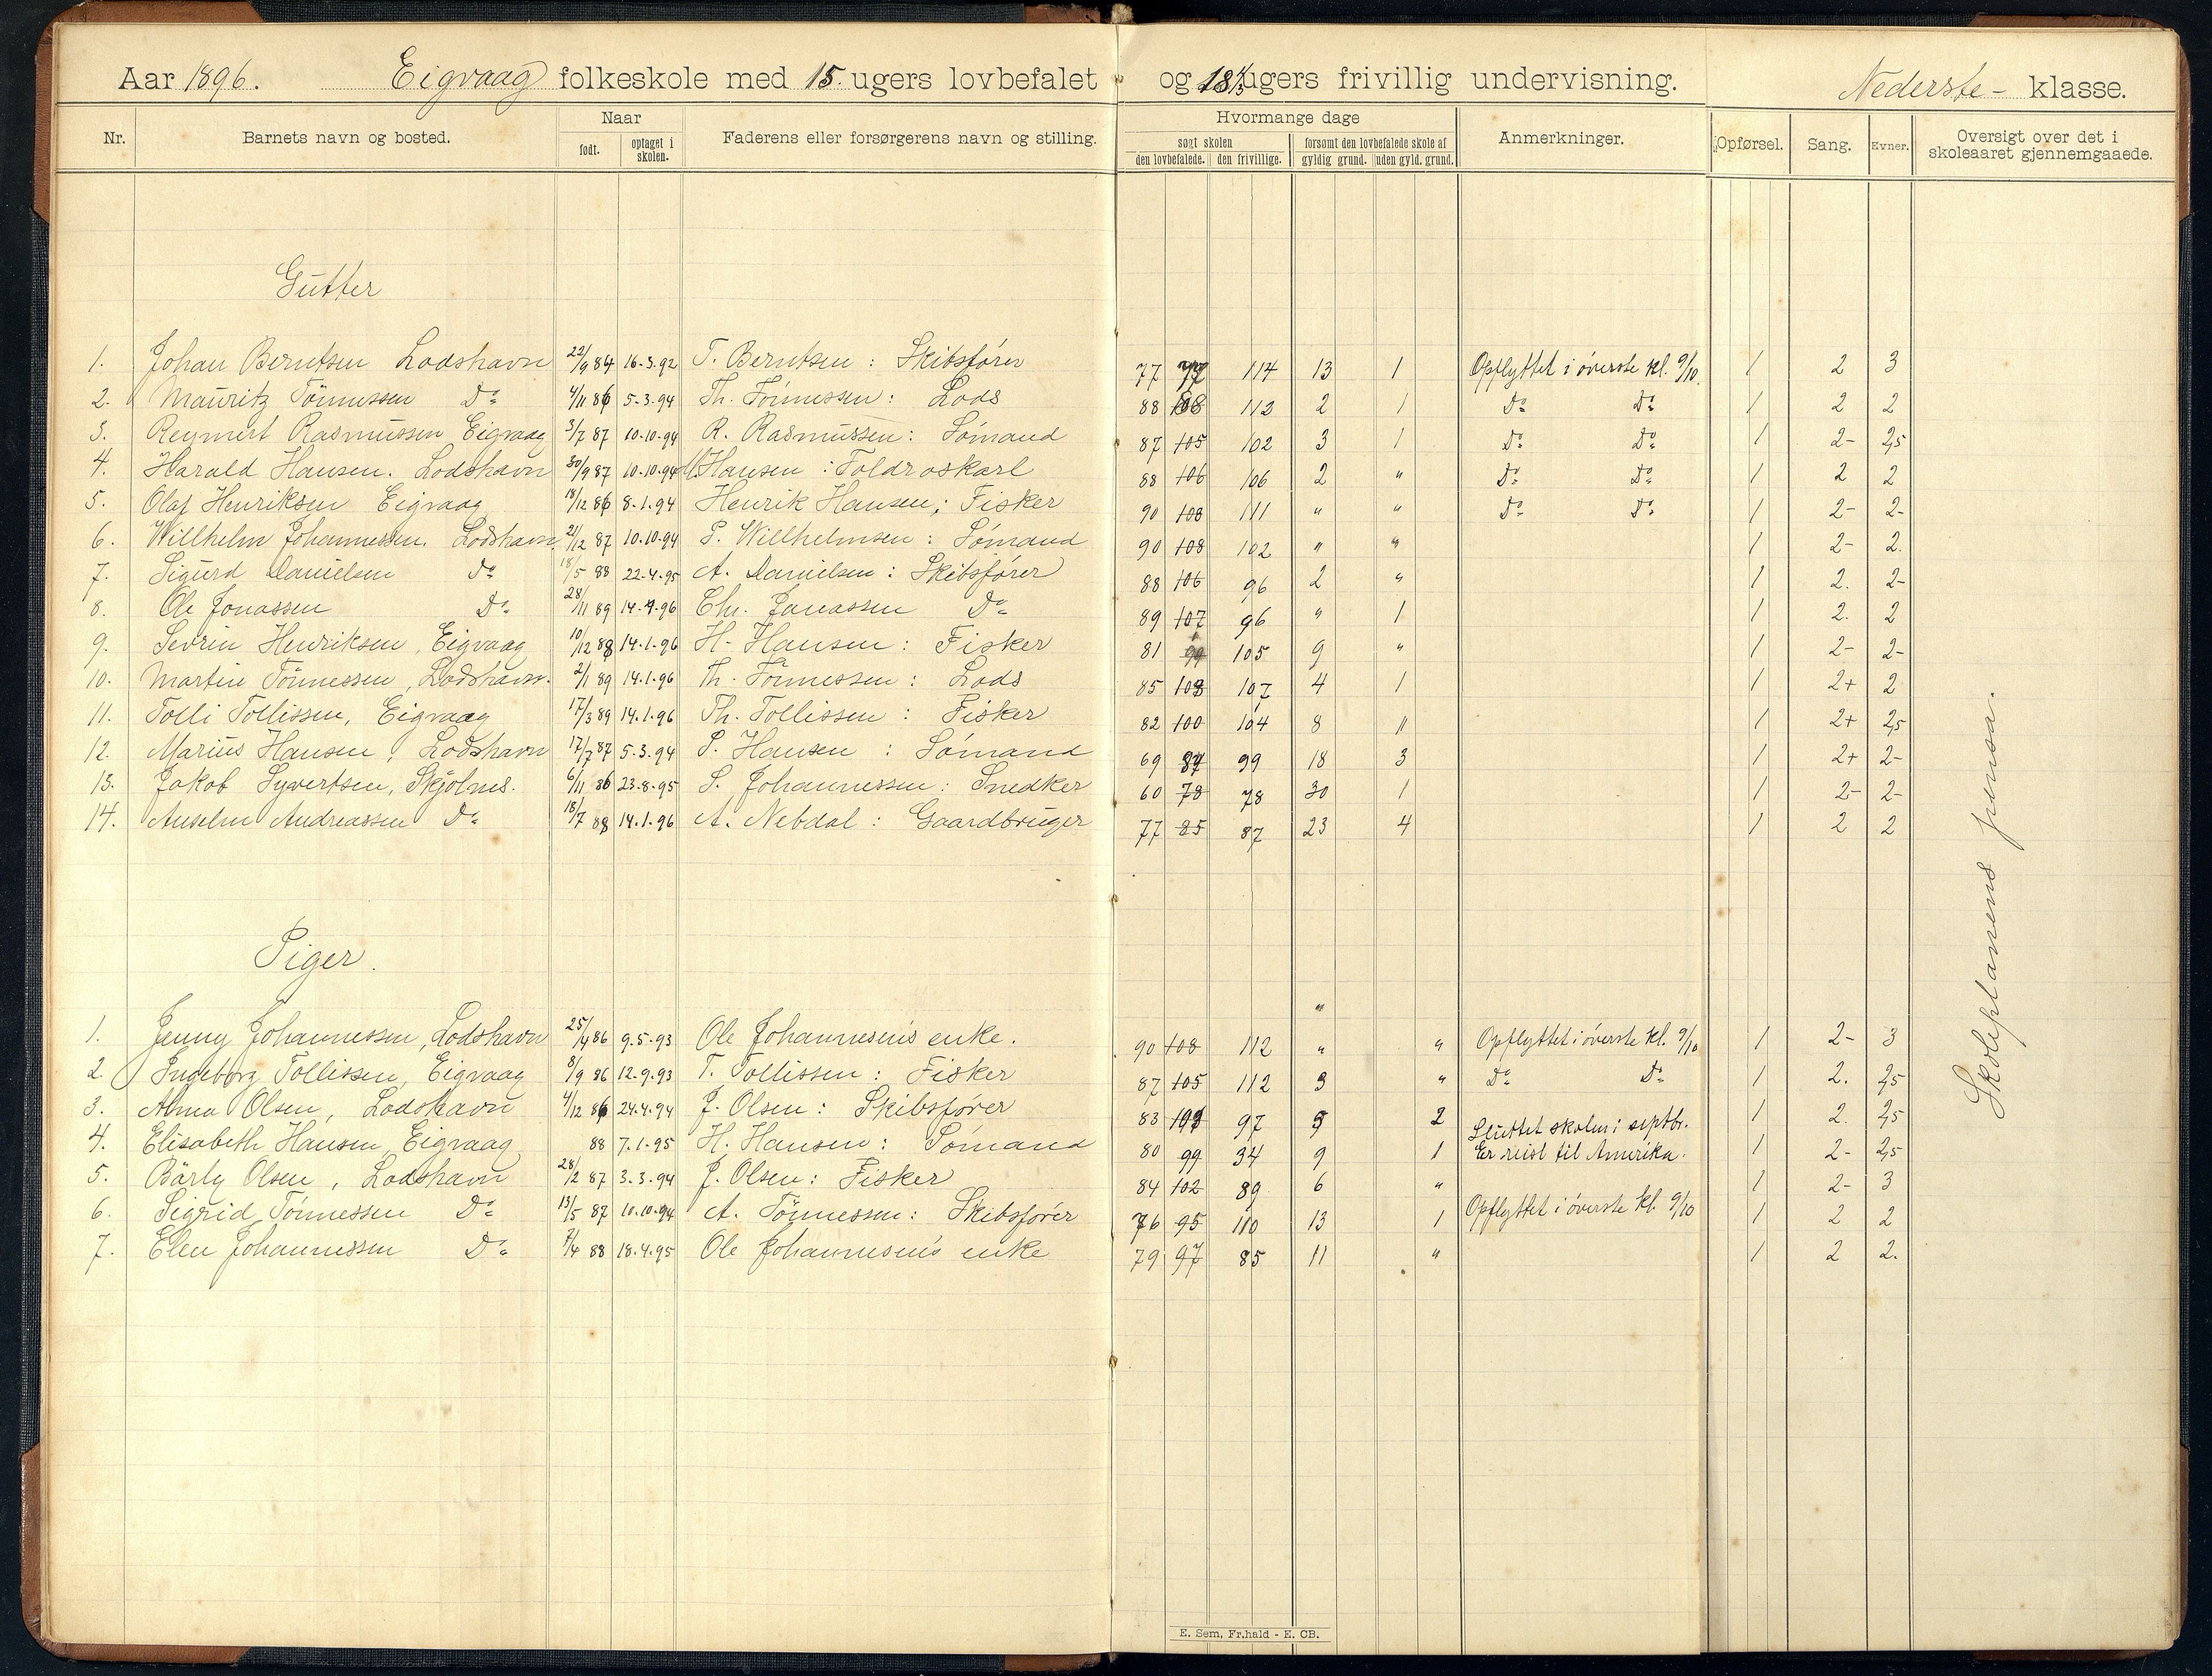 Aar 1896. Eigvaag folkeskole med 15 ugers lovbefalet og 18 1/3 ugers frivillig undervisning. Nederste- klasse.
Nr. Barnets navn og bosted. Naar født. optaget i skolen. Faderens eller forsørgerens navn og stilling. Hvormange dage søgt skolen den lovbefalede. den frivillige. forsømt den lovbefalede skole af gyldig grund. uden gyld. grund. Anmerkninger. Opførsel. Sang. Evner. Oversigt over det i skoleaaret gjennemgaaede.
Gutter
1. Johan Berntsen Lodshavn 22/9 84 16-3.92 T. Berntsen: Skibsfører 77 114 13 1 Opflyttet i øverste kl. 9/10. 1 2 3
2. Mauritz Tönnessen Do 4/11 86 5-3.94 Th. Tönnessen: Lods 88 108 112 2 1 Do Do 1 2 2
3. Reymert Rasmussen Eigvaag 3/7 87 10-10-94 R. Rasmussen: Sömand 87 105 102 3 1 Do Do 1 2- 2,5
4. Harald Hansen. Lodshavn 30/9 87 10-10-94 Hansen: Toldroskarl 88 106 106 2 " Do Do 1 2 2
5. Olaf Henriksen Eigvaag 18/12 86 8-1.94 Henrik Hansen; Fisker 90 108 111 " " Do Do 1 2- 2-
6. Willhelm Johannessen. Lodshavn 21/12 87 10-10-94 P. Willhelmsen: Sömand 90 108 102 " " 1 2- 2.
7. Sigurd Danielsen Do 18/5 88 22-4-95 A. Danielsen: Skibsfører 88 106 96 2 " 1 2. 2-
8. Ole Jonassen Do 28/11 89 14-4-96 Chr. Jonassen Do 89 107 96 " 1 1 2. 2
9. Sevrin Henriksen, Eigvaag 10/12 88 14-1-96 H. Hansen: Fisker 81 99 105 9 " 1 2- 2-
10. Martin Tönnessen, Lodshavn. 2/1 89 14.1.96 Th. Tönnessen: Lods 85 103 107 4 1 1 2+ 2
11. Tolli Tollissen, Eigvaag 17/3 89 14.1.96 Th. Tollissen: Fisker 82 100 104 8 " 1 2+ 2,5
12. Marius Hansen, Lodshavn 17/7 87 5-3.94 P. Hansen: Sömand 69 87 99 18 3 1 2+ 2-
13. Jakob Syvertsen, Skjölnes. 6/11 86 23-8-95 S. Johannessen: Snedker 60 78 78 30 1 1 2- 2-
14. Anselm Andreassen Do 18/7 88 14.1.96 A. Nebdal: Gaardbruger 77 85 87 23 4 1 2 2
Piger.
"
1. Jenny Johannessen, Lodshavn 25/4 86 9-5-93 Ole Johannesens enke. 90 108 112 " " Opflyttet i øverste kl. 9/10 1 2- 3
2. Ingeborg Tollissen, Eigvaag 8/9 86 12-9.93 T. Tollissen: Fisker 87 105 112 3 " Do Do 1 2. 2,5
3. Alma Olsen, Lodshavn 4/12 86 24.4.94 J. Olsen: Skibsfører 83 97 5 2 1 2. 2,5
Sluttet skolen i septbr.
4. Elisabeth Hansen, Eigvaag 88 7.1-95 H. Hansen: Sömand 80 99 34 9 1 Er reist til Amerika. 1 2- 2,5
5. Bärly Olsen, Lodshavn 28/2 87 3-3-94 J. Olsen: Fisker 84 102 89 6 " 1 2- 3
6. Sigrid Tönnessen Do 13/5 87 10.10.94 A. Tönnessen: Skibsfører 76 95 110 13 1 Opflyttet i øverste kl. 9/10 1 2 2
7. Elen Johannessen Do 7/4 88 18.4.95 Ole Johannesens enke 79 97 85 11 " 1 2 2.
Skoleplanens pensa.
E. Sem, Fr.hald - E. CB.